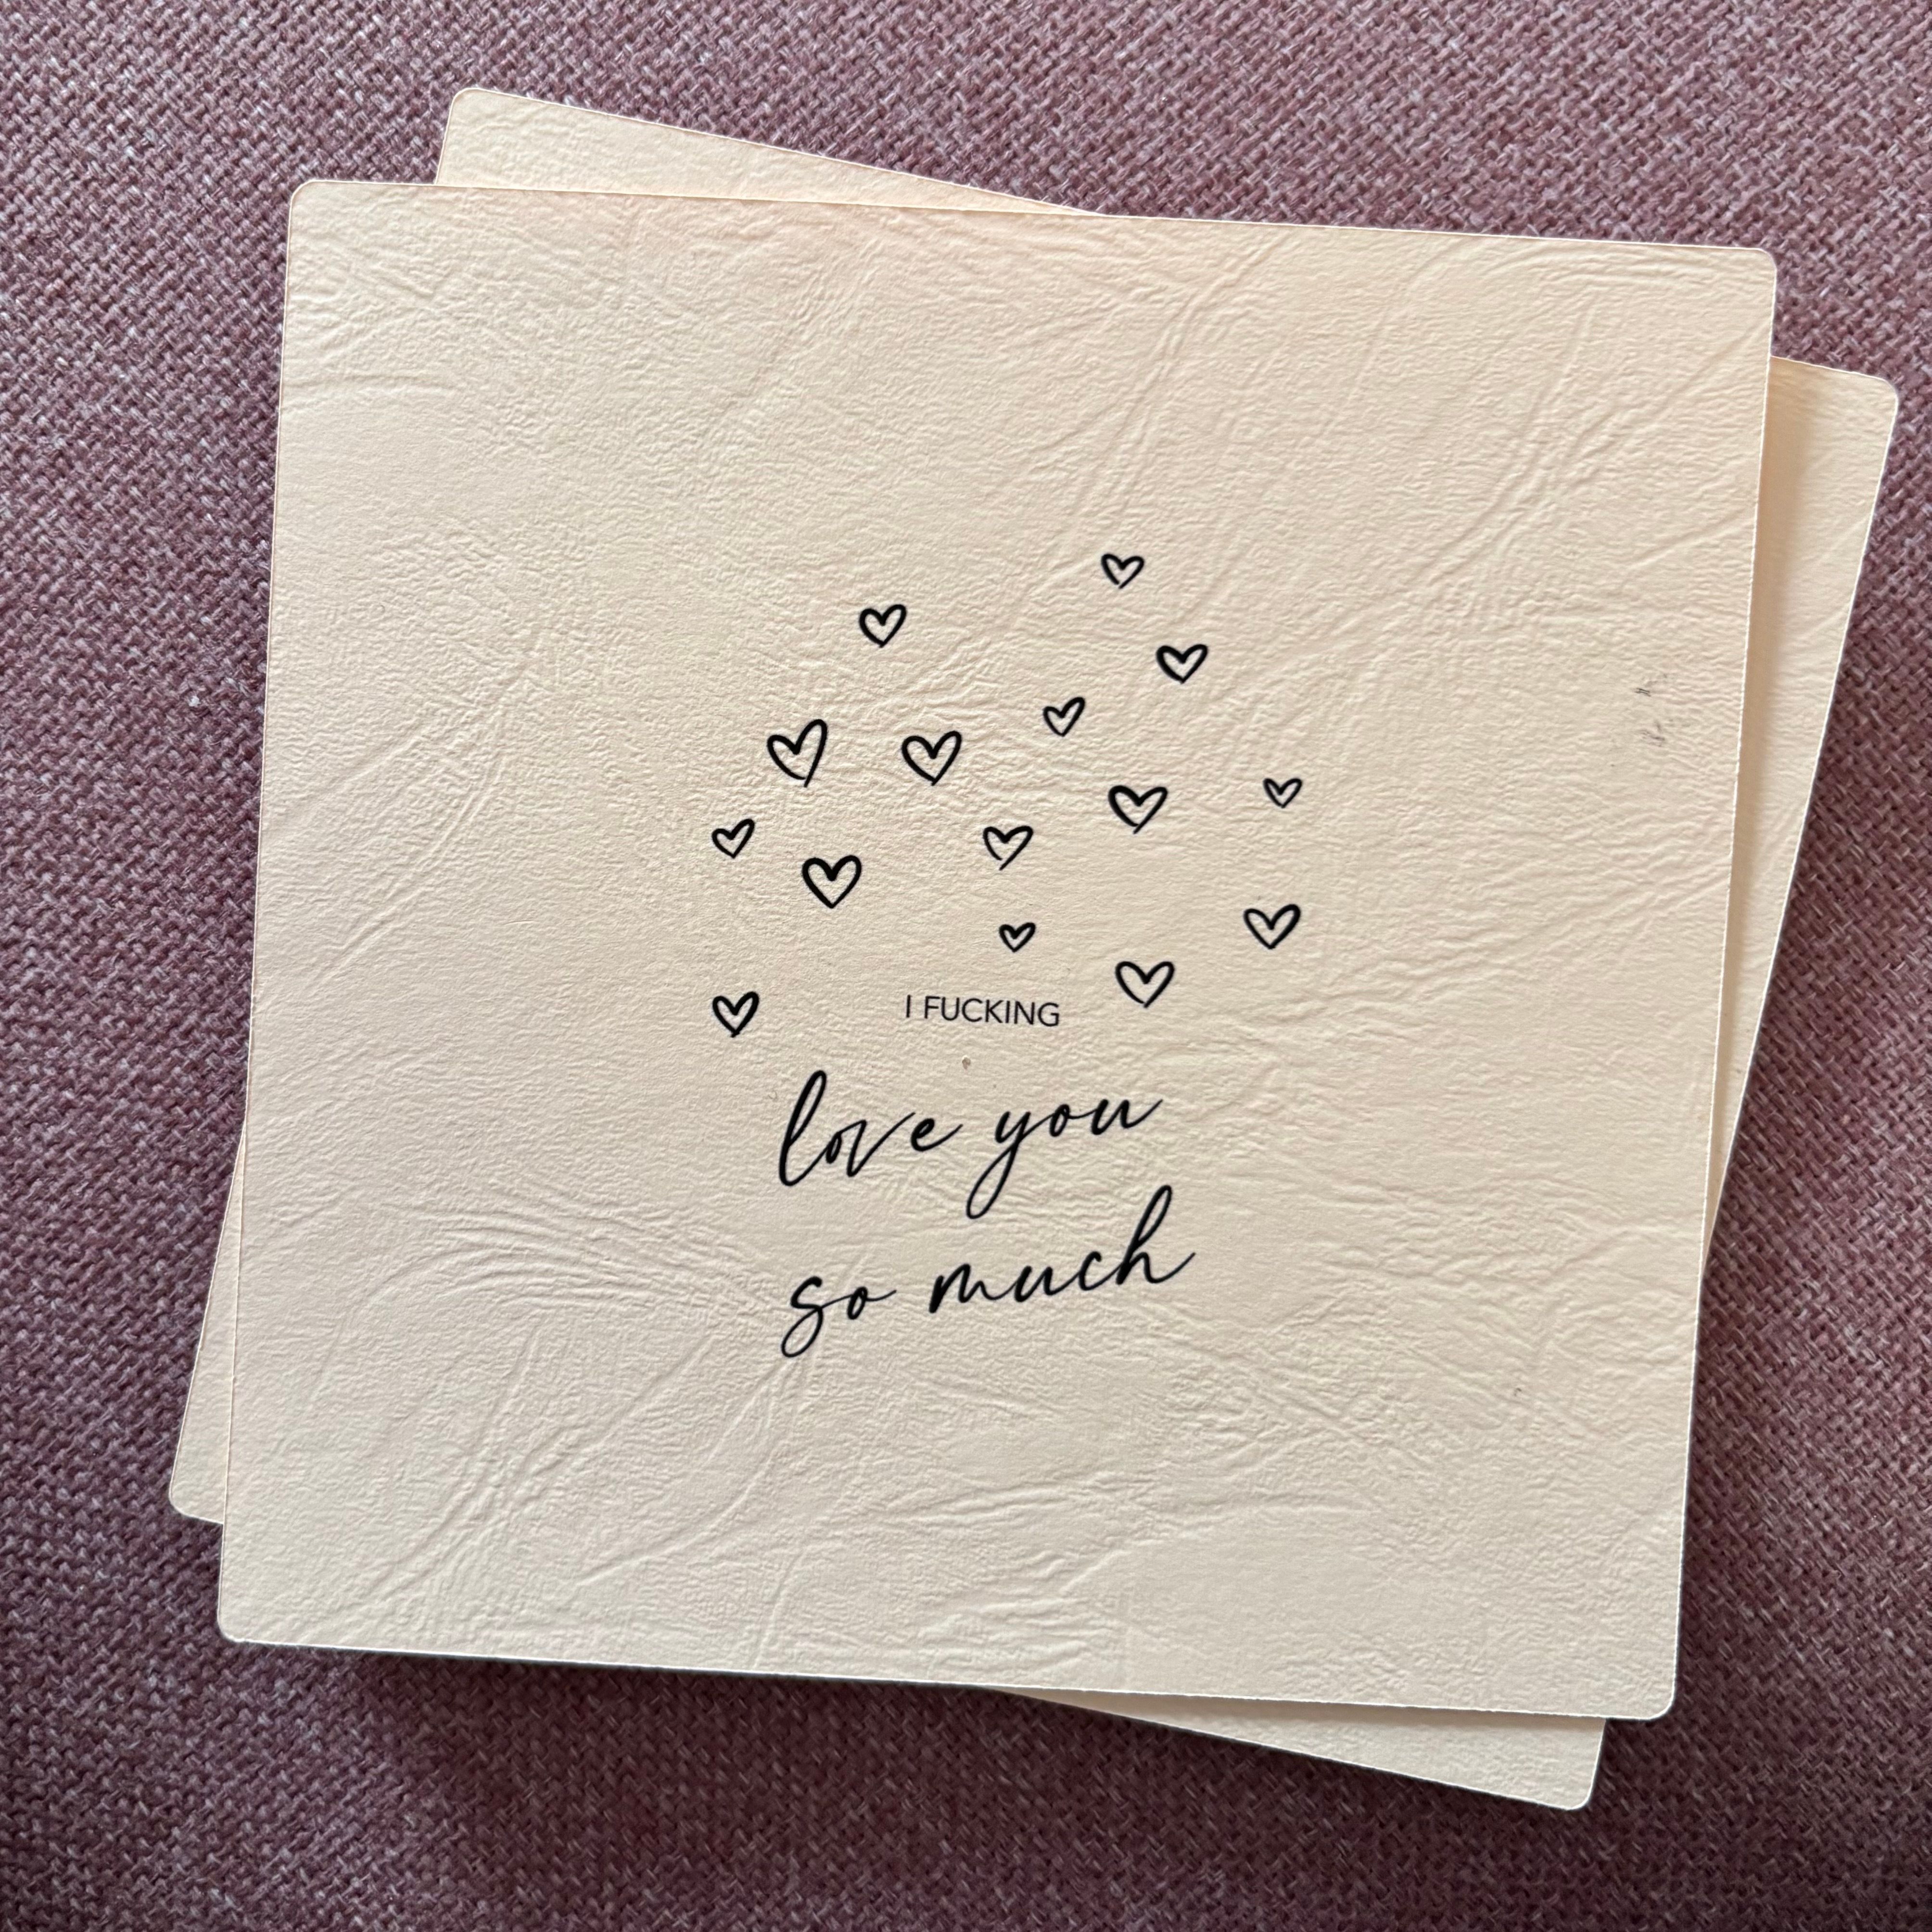 I FUCKING
love you
so much